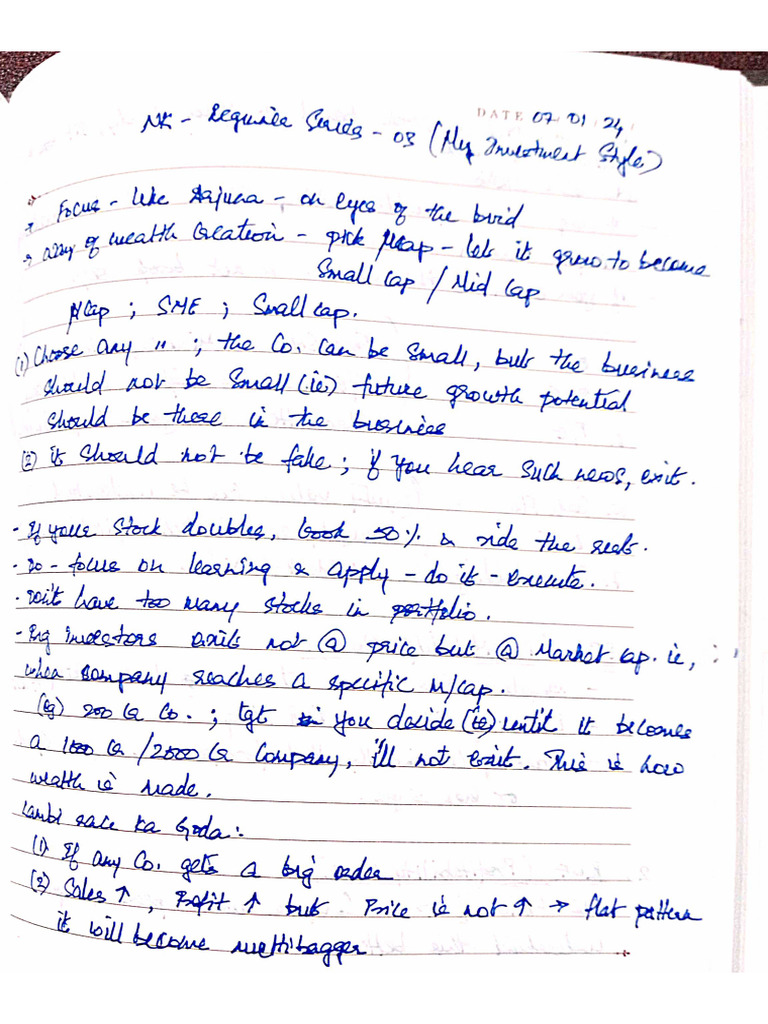 DATE 07 01 24
NK - Requira Series - 03 (My Investment Style)
→ Focus - like Arjuna - on eyes of the bird
→ way of wealth creation - pick μcap - let it grow to become
Small cap / Mid cap
μcap ; SME ; Small cap.
(1) Choose any " ; the Co. can be small, but the business
should not be small (ie) future growth potential
should be there in the business
(2) it should not be fake ; if you hear such news, exit.
- If your stock doubles, book 50% & ride the rest.
- Do - focus on learning & apply - do it - execute.
- Don't have too many stocks in portfolio.
- Big investors exits not @ price but @ Market cap. ie,
when company reaches a specific M/cap.
(eg) 200 Cr Co. ; tgt you decide (ie) until it becomes
a 1000 Cr / 2000 Cr Company, i'll not exit. This is how
wealth is made.
Lambi race ka Goda :-
(1) If any Co. gets a big order
(2) Sales ↑, Profit ↑ but Price is not ↑ → flat pattern
it will become multibagger